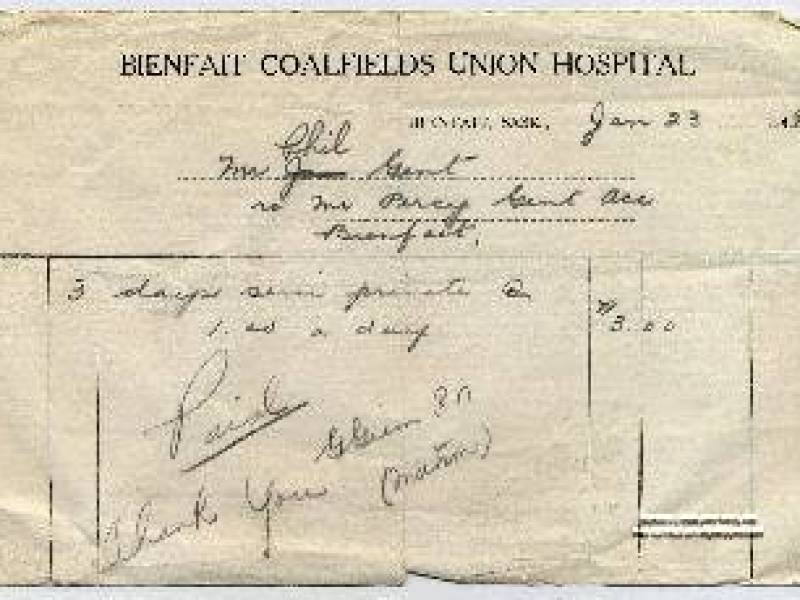 BIENFAIT COALFIELDS UNION HOSPITAL
BIENFAIT, SASK., Jan 23
Phil
Mr Gent
Mr Percy Gent Acc
Bienfait,
3 days semi private @
1.00 a day $3.00
Paid
Thank You (Matron)